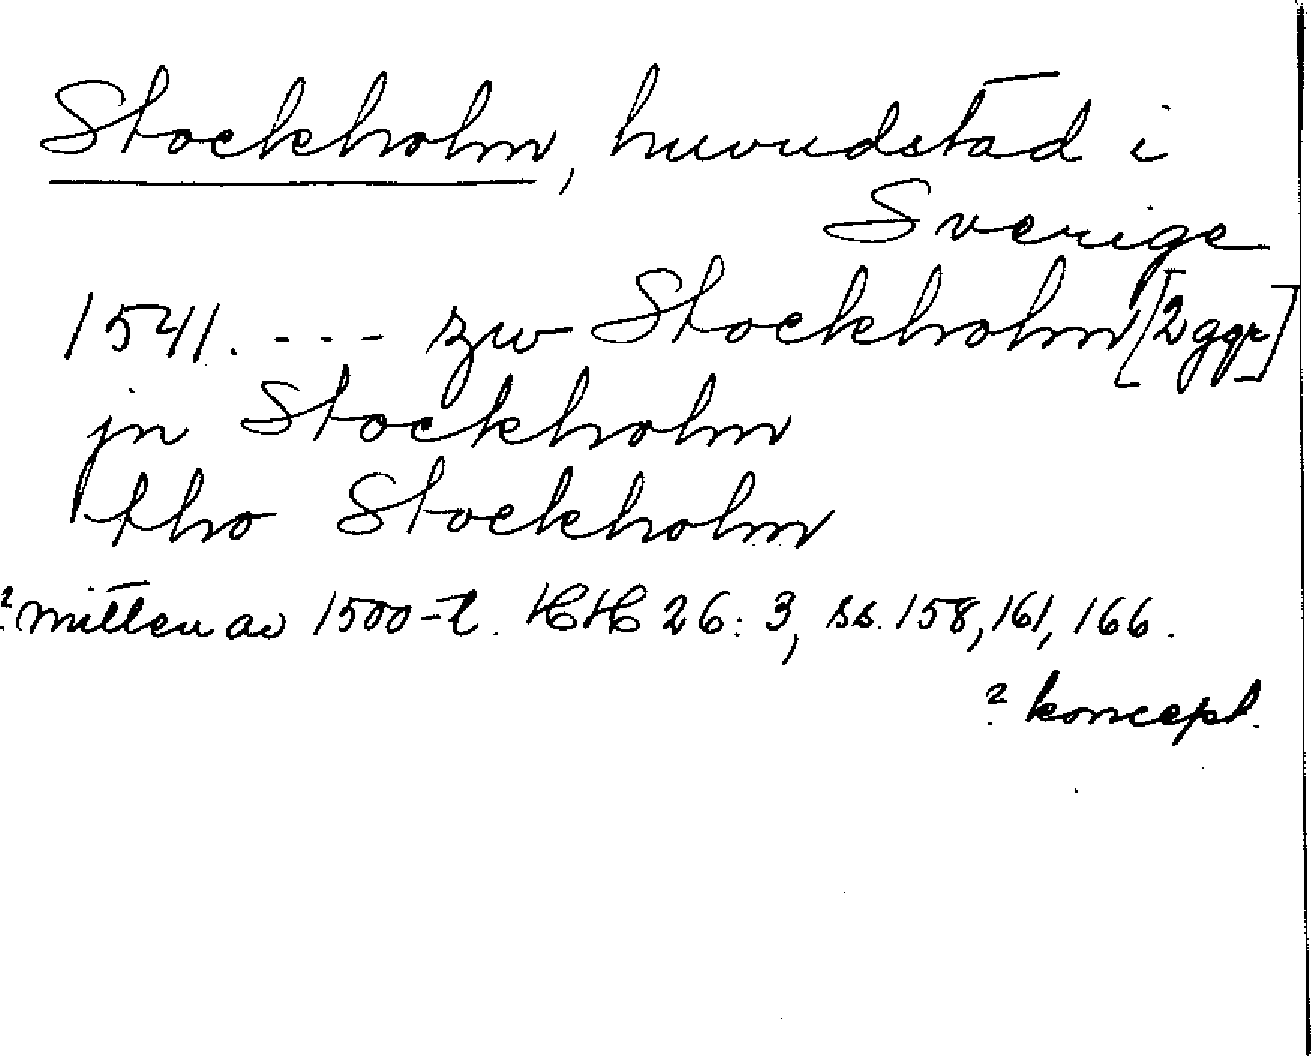 Stockholm, huvudstad i
Sverige
1541. --- zw Stockholm [2 ggr]
jn Stockholm
tho Stockholm
? mitten av 1500-t. HH 26: 3, ss. 158, 161, 166.
? koncept.